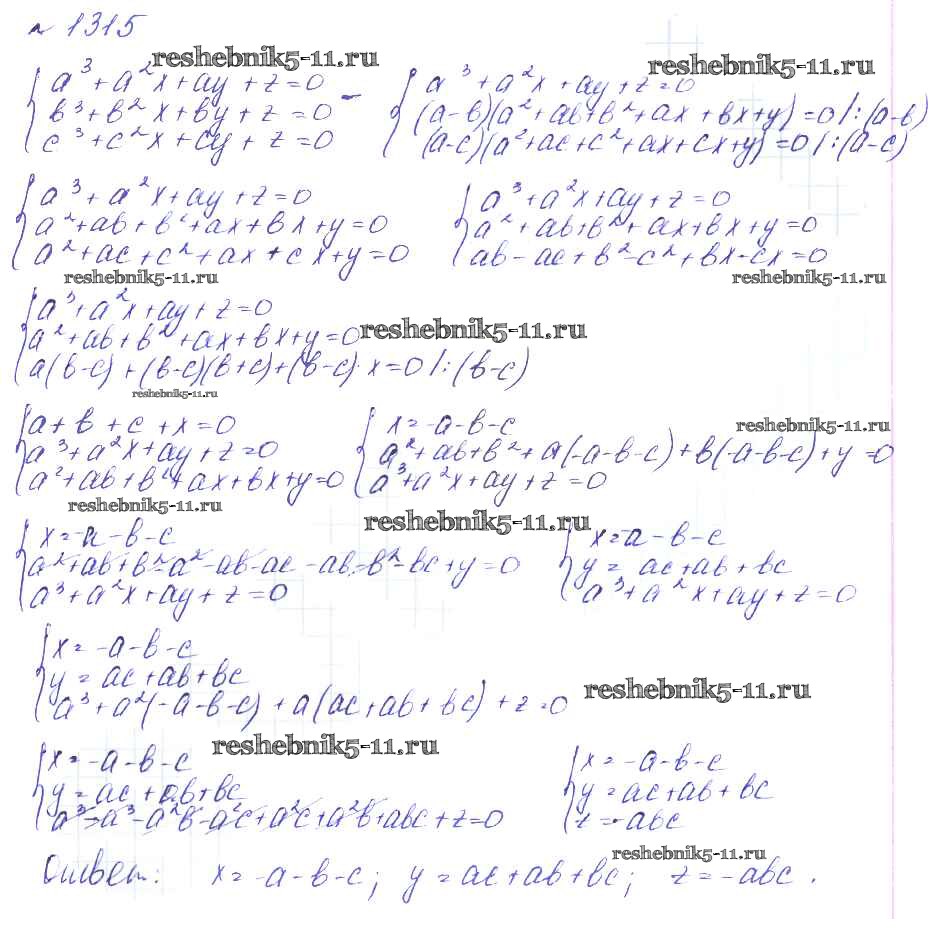 № 1315
reshebnik5-11.ru
reshebnik5-11.ru
{ a³ + a²x + ay + z = 0
в³ + в²x + вy + z = 0 -
c³ + c²x + cy + z = 0
{ a³ + a²x + ay + z = 0
(a-в)(a² + aв + в² + ax + вx + y) = 0 |:(a-в)
(a-c)(a² + ac + c² + ax + cx + y) = 0 |:(a-c)
{ a³ + a²x + ay + z = 0
a² + aв + в² + ax + вx + y = 0
a² + ac + c² + ax + cx + y = 0
{ a³ + a²x + ay + z = 0
a² + aв + в² + ax + вx + y = 0
aв - ac + в² - c² + вx - cx = 0
reshebnik5-11.ru
reshebnik5-11.ru
{ a³ + a²x + ay + z = 0
a² + aв + в² + ax + вx + y = 0
a(в-c) + (в-c)(в+c) + (в-c)·x = 0 |:(в-c)
reshebnik5-11.ru
reshebnik5-11.ru
{ a + в + c + x = 0
a³ + a²x + ay + z = 0
a² + aв + в² + ax + вx + y = 0
{ x = -a-в-c
a² + aв + в² + a(-a-в-c) + в(-a-в-c) + y = 0
a³ + a²x + ay + z = 0
reshebnik5-11.ru
reshebnik5-11.ru
reshebnik5-11.ru
{ x = -a-в-c
a² + aв + в² - a² - aв - ac - aв - в² - вc + y = 0
a³ + a²x + ay + z = 0
{ x = -a-в-c
y = ac + aв + вc
a³ + a²x + ay + z = 0
{ x = -a-в-c
y = ac + aв + вc
a³ + a²(-a-в-c) + a(ac + aв + вc) + z = 0
reshebnik5-11.ru
reshebnik5-11.ru
{ x = -a-в-c
y = ac + aв + вc
a³ - a³ - a²в - a²c + a²c + a²в + aвc + z = 0
{ x = -a-в-c
y = ac + aв + вc
z = -aвc
reshebnik5-11.ru
Ответ: x = -a-в-c; y = ac + aв + вc; z = -aвc.